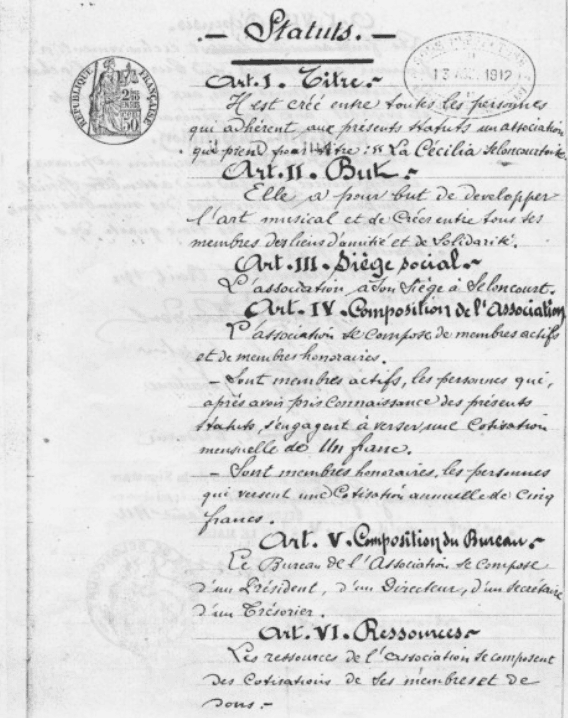 .— Statuts. —
SOUS-PRÉFECTURE
13 AOU 1912
RÉPUBLIQUE FRANÇAISE
50
Art. I. Titre.-
Il est créé entre toutes les personnes
qui adhèrent aux présents statuts un association
qui prend pour titre : "La Cécilia Seloncourtoise
Art. II. But -
Elle a pour but de developper
l'art musical et de Créer entre tous ses
membres des liens d'amitié et de Solidarité.
Art. III. Siège social.-
L'association a son Siège à Seloncourt.
Art. IV. Composition de l'Association
L'association se Compose de membres actifs
et de membres honoraires.
— Sont membres actifs, les personnes qui,
après avoir pris Connaissance des présents
statuts, s'engagent à verser une Cotisation
mensuelle de Un franc.
— Sont membres honoraires, les personnes
qui versent une Cotisation annuelle de Cinq
francs.
Art. V. Composition du Bureau.-
Le Bureau de l'Association se Compose
d'un Président, d'un Directeur, d'un Secrétaire
d'un Trésorier.
Art. VI. Ressources-
Les ressources de l'association se composent
des Cotisations de ses membres et de
dons.-